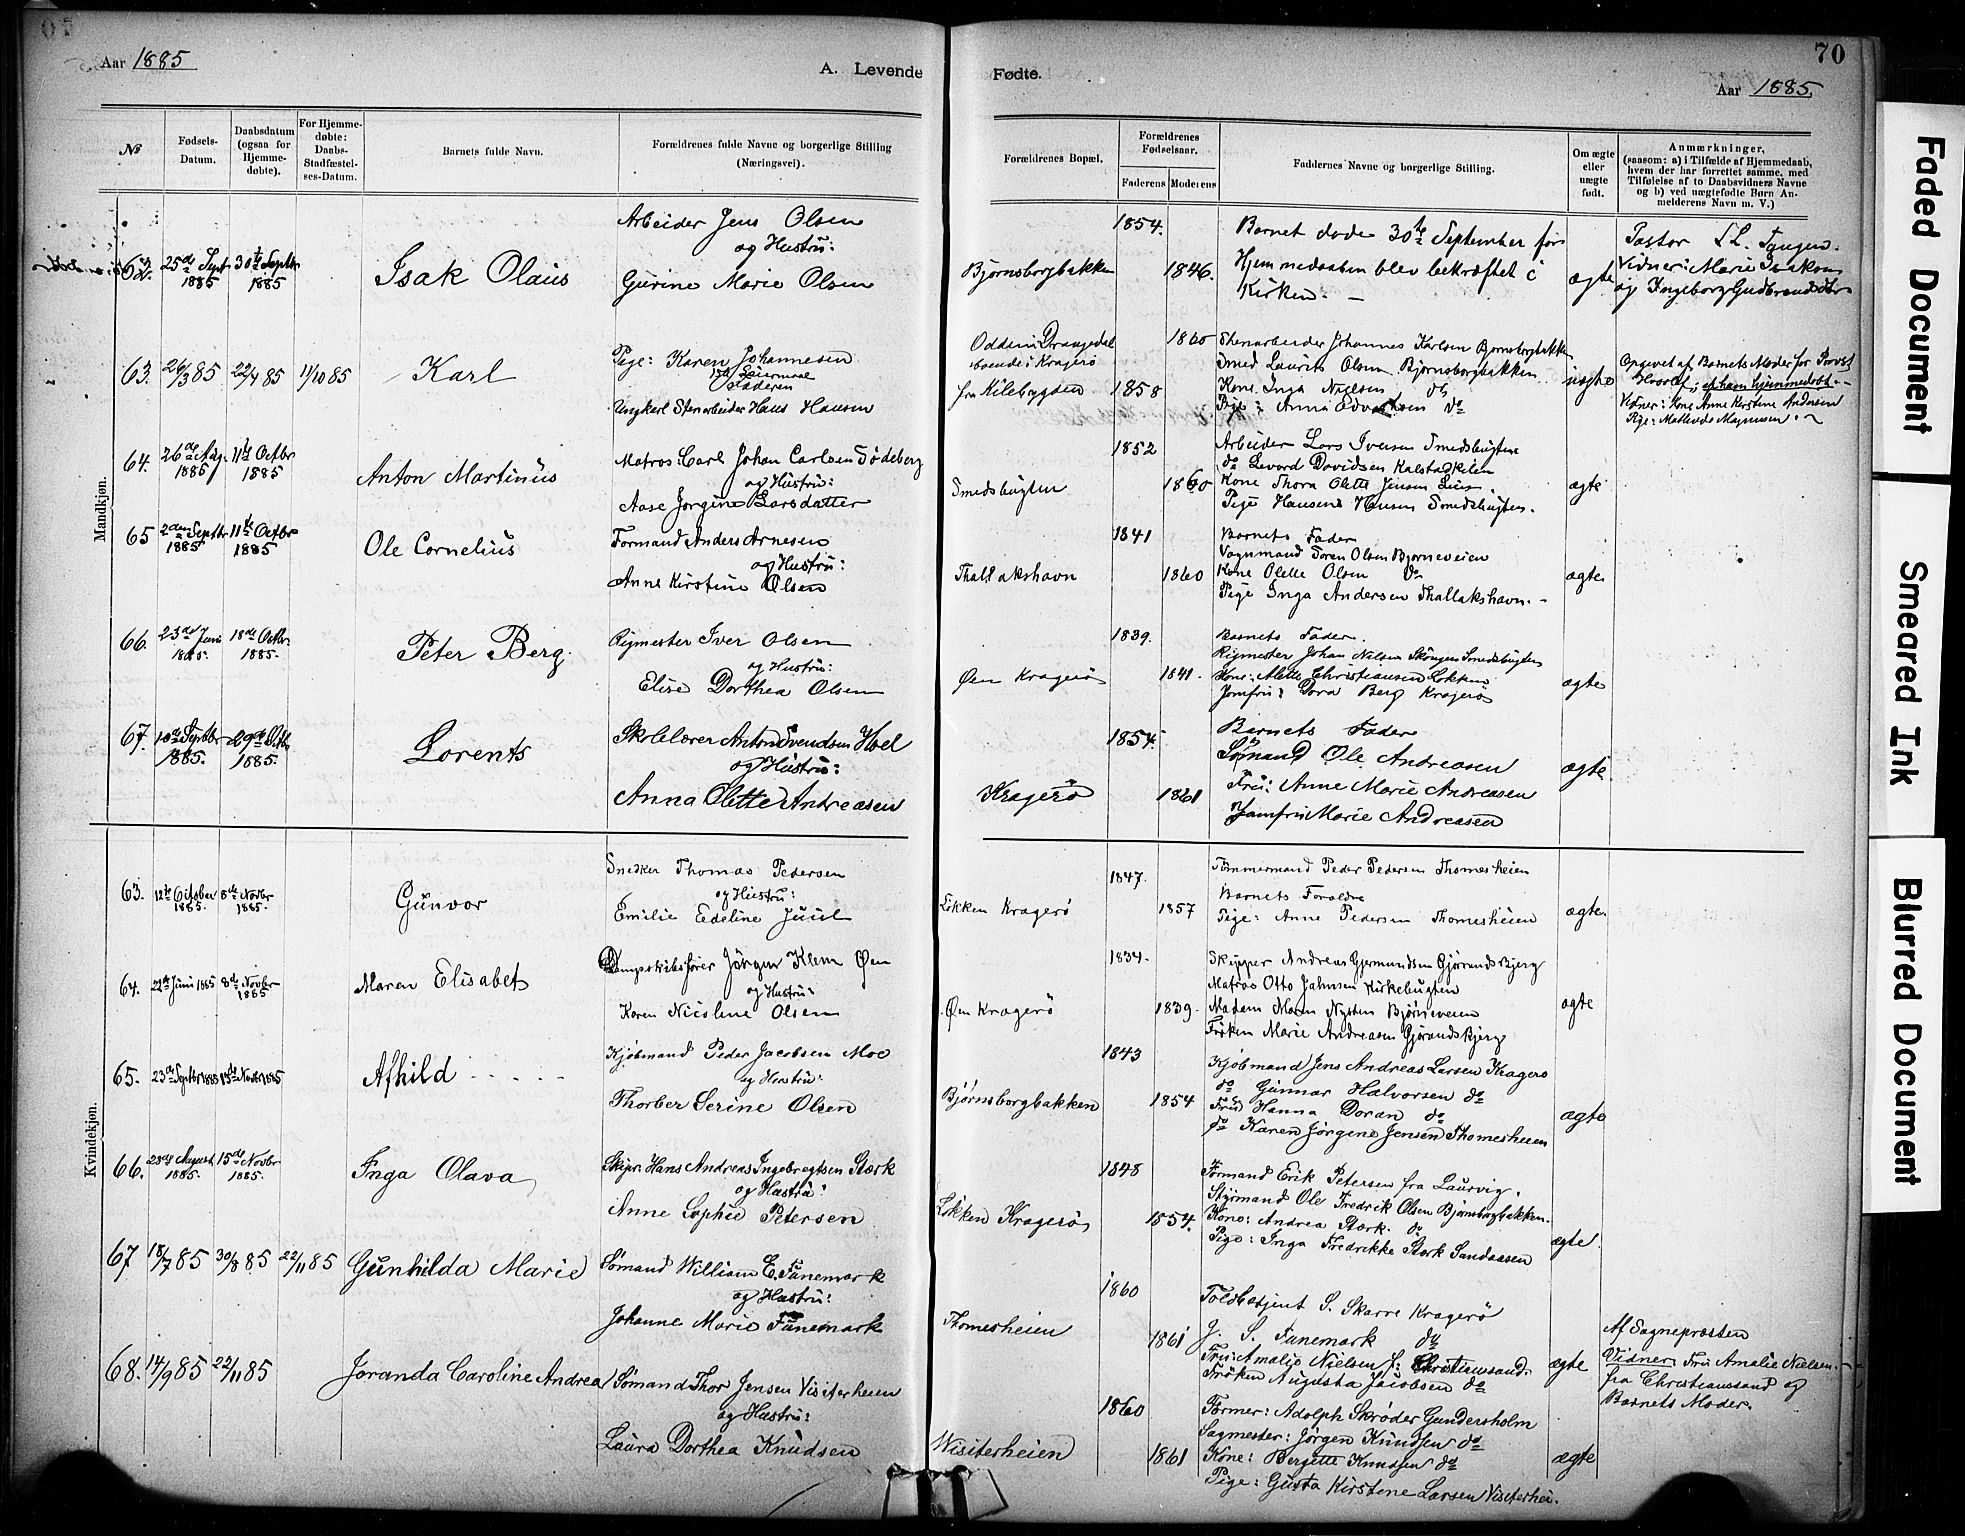 Aar 1885
A. Levende
Fødte.
70
Aar 1885.
No
Fødsels-Datum.
Daabsdatum (ogsaa for Hjemme-døbte).
For Hjemme-døbte: Daabs-Stadfæstel-ses-Datum.
Barnets fulde Navn.
Forældrenes fulde Navne og borgerlige Stilling (Næringsvei).
Forældrenes Bopæl.
Forældrenes Fødselsaar.
Faderens
Moderens
Faddernes Navne og borgerlige Stilling.
Om ægte eller uægte født.
Anmærkninger, (saasom: a) i Tilfælde af Hjemmedaab, hvem der har forrettet samme, med Tilføielse af to Daabsvidners Navne og b) ved uægtefødte Børn An-melderens Navn m. V.)
Mandkjøn.
62. 25de Sept 1885 30te Septbr 1885
Isak Olaus
Arbeider Jens Olsen
og Hustru:
Gurine Marie Olsen
Bjørnsborgbakken
1854.
1846.
Barnet døde 30te September før
Hjemmedaaben blev bekræftet i
Kirken. —
ægte
Pastor Tangen.
Vidner: Marie Isaksen
og Ingeborg Gudbrandsdtr
63. 26/3 85 22/4 85 11/10 85
Karl
Pige: Karen Johannesen
Faderen
Ungkarl Stenarbeider Hans Hansen
Odden i Drangedal
boende i Kragerø
fra Kilebygden
1860
1858
Stenarbeider Johannes Karlsen Bjørnsborgbakken
Smed Laurits Olsen Bjørnsborgbakken
Kone Inga Nielsen do
Pige: Anna Edvardsen do
uægte
Opgivet af Barnets Moder for Provst
af ham hjemmedøbt. -
Vidner: Kone Anne Kirstine Andersen
Pige: Mathilde Magnussen. -
64. 26de Aug. 1885 11te Octbr 1885
Anton Martinus
Matros: Carl Johan Carlsen Södeberg
og Hustru:
Aase Jørgine Larsdatter
Smedsbugten
1852
1860
Arbeider Lars Iversen Smedsbugten
do Levord Davidsen Kalstadkilen
Kone Thora Olette Jensen
Pige Hansine Hansen Smedsbugten.
ægte
65 2den Septbr 1885 11te Octbr 1885
Ole Cornelius
Formand Anders Arnesen
og Hustru:
Anne Kirstine Olsen
Thallakshavn
1841
1860
Barnets Fader
Vognmand Søren Olsen Bjørneveien
Kone Olette Olsen do
Pige Inga Andersen Thallakshavn. -
ægte
66. 23de Juni 1885. 18de Octbr. 1885.
Peter Berg.
Rigmester Iver Olsen
og Hustru:
Elise Dorthea Olsen
Øen Kragerø
1839.
1841.
Barnets Fader.
Rigmester Johan Nilsen Smedsbugten
Kone: Alette Christiansen Løkken
Jomfru: Dora Berg Kragerø
ægte
67. 10de Septbr 1885. 29de 1885.
Lorents
Skolelærer Anton Svendsen Hoel
og Hustru:
Anna Olette Andreasen
Kragerø
1854.
1861
Barnets Fader
Sømand Ole Andreasen
Fru: Anne Marie Andreasen
Jomfru Marie Andreasen
ægte
Kvindekjøn.
63. 12te October 1885. 8de Novbr 1885.
Gunvor
Snedker Thomas Pedersen
og Hustru:
Emilie Edeline Juul
Løkken Kragerø
1847.
1857
Tømmermand Peder Pedersen Thomesheien
Barnets Forældre
Pige: Anne Pedersen Thomesheien
ægte.
64. 22de Juni 1885 8de Novbr 1885
Maren Elisabet
Dampskibsfører Jørgen Klem Øen
og Hustru:
Karen Nicoline Olsen
Øen Kragerø
1834.
1839.
Skipper Andreas Gjermundsen Gjørands Bjerg
Matros Otto Jahnsen Kirkebugten
Madam Maren Nysten Bjørneveien
Frøken Marie Andreasen Gjørands Bjerg
ægte
65. 23de Septbr 1885 15de Novbr 1885
Afhild - - - - -
Kjøbmand Peder Jacobsen Moe
og Hustru:
Thorber Serine Olsen
Bjørnsborgbakken
1843
1854
Kjøbmand Jens Andreas Larsen Kragerø
do Gunnar Halvorsen do
Fru Hanna Doran do
do Karen Jørgene Jensen Thomesheien
ægte
66. 28de August 1885. 15de Novbr 1885.
Inga Olava
Skipr. Hans Andreas Ingebregtsen Stærk
og Hustru:
Anne Sophie Petersen
Løkken Kragerø
1848
1854.
Formand Erik Petersen fra Laurvig.
Styrmand Ole Fredrik Olsen Bjørnsborgbakken.
Kone: Andrea Stærk. do
Pige: Inga Fredrikke Stærk Sandaasen
ægte.
67 18/7 85 30/8 85 22/11 85
Gunhilda Marie
Sømand William E. Funemark
og Hustru:
Johanne Marie Funemark
Thomesheien
1860
1861
Toldbetjent S. Skarre Kragerø
J. S. Funemark do
Fru: Amalie Nielsen f: Christianssand.
Frøken Augusta Jacobsen do
ægte
Af Sognepræsten
Vidner: Fru Amalie Nielsen.
fra Christianssand og
Barnets Moder.
68. 14/9 85 22/11 85
Joranda Caroline Andrea
Sømand Thor Jensen Visiterheien
og Hustru:
Laura Dorthea Knudsen
Wisiterheien
1860
1861
Former: Adolph Skrøder Gundersholm
Sagmester: Jørgen Knudsen do
Kone: Bergette Knudsen do
Pige: Gusta Kirstene Larsen Visiterhei.
ægte
Faded Document
Smeared Ink
Blurred Document